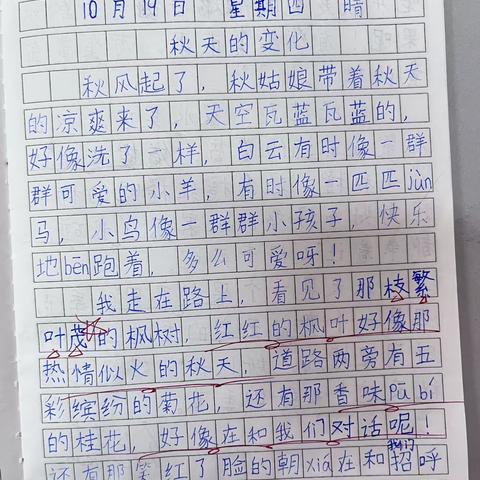 10月19日 星期四 晴
秋天的变化
秋风起了，秋姑娘带着秋天
的凉爽来了，天空瓦蓝瓦蓝的，
好像洗了一样，白云有时像一群
群可爱的小羊，有时像一匹匹jùn
马，小鸟像一群群小孩子，快乐
地bēn跑着，多么可爱呀！
我走在路上，看见了那枝繁
叶茂的枫树，红红的枫叶好像那
热情似火的秋天，道路两旁有五
彩缤纷的菊花，还有那香味pū bí
的桂花，好像在和我们对话呢！
还有那笑红了脸的朝xiá在和我们招呼